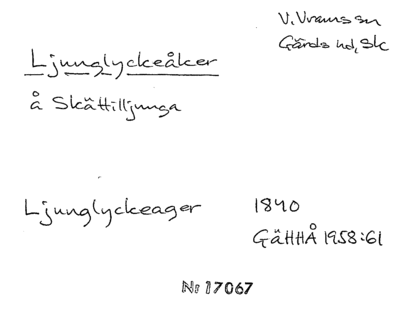 V. Vrams sn
Gärds hd, Sk
Ljunglyckeåker
å Skättilljunga
Ljunglyckeager 1840
GäHHÅ 1958:61
Nr 17067